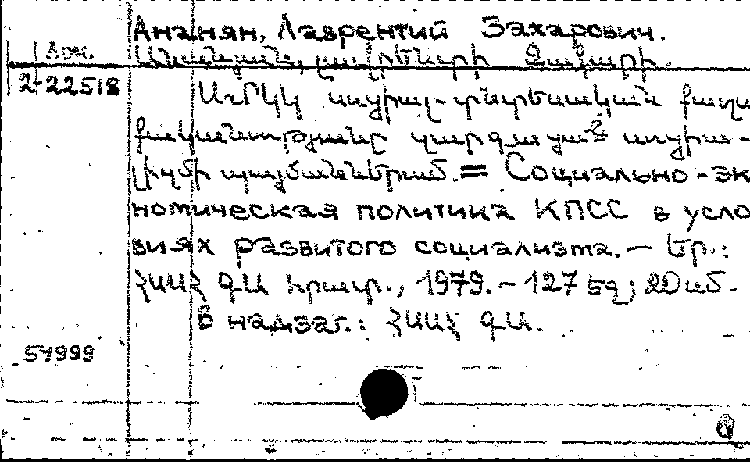 Ананян, Лаврентий Захарович.
Арм. Անանյան, Լավրենտի Զաքարի.
2-22518
ՍՄԿԿ սոցիալ-տնտեսական քաղա
քականությունը զարգացած սոցիա-
լիզմի պայմաններում. = Социально-эк
номическая политика КПСС в усло
виях развитого социализма. — Եր.:
ՀՍՍՀ ԳԱ հրատ., 1979. – 127 էջ; 20 սմ.
В надзаг.: ՀՍՍՀ ԳԱ.
54999